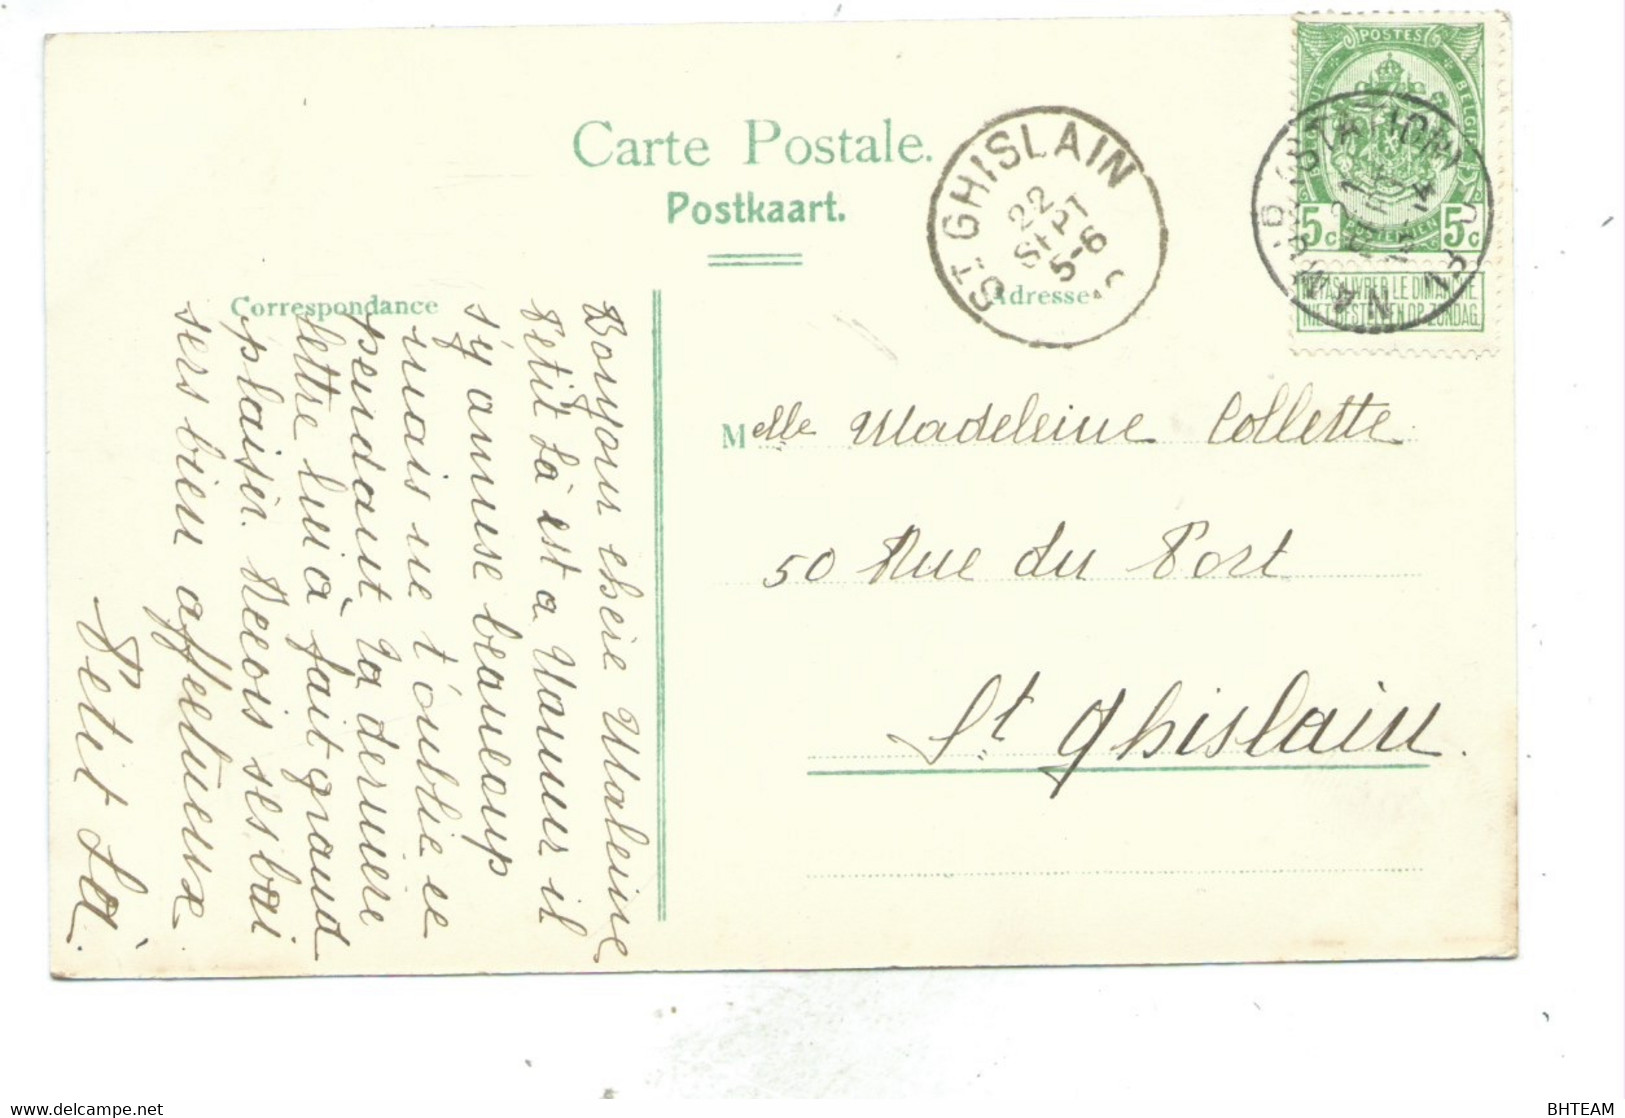 POSTES
BELGIQUE
5c 5c
POSTERIJEN
NE PAS LIVRER LE DIMANCHE
NIET BESTELLEN OP ZONDAG
Carte Postale.
Postkaart.
ST. GHISLAIN
22
SEPT
5-6
NAMUR
Correspondance
Adresse
Bonjour chère Maleine
Petit Là est a Namur il
s'y amuse beaucoup
mais ne t'oublie ce
pendant la dernière
lettre lui à fait grand
plaisir. Recois ses bai
sers bien affectueux
Petit Là.
Melle Madeleine Collette
50 Rue du Port
St Ghislain.
BHTEAM
www.delcampe.net